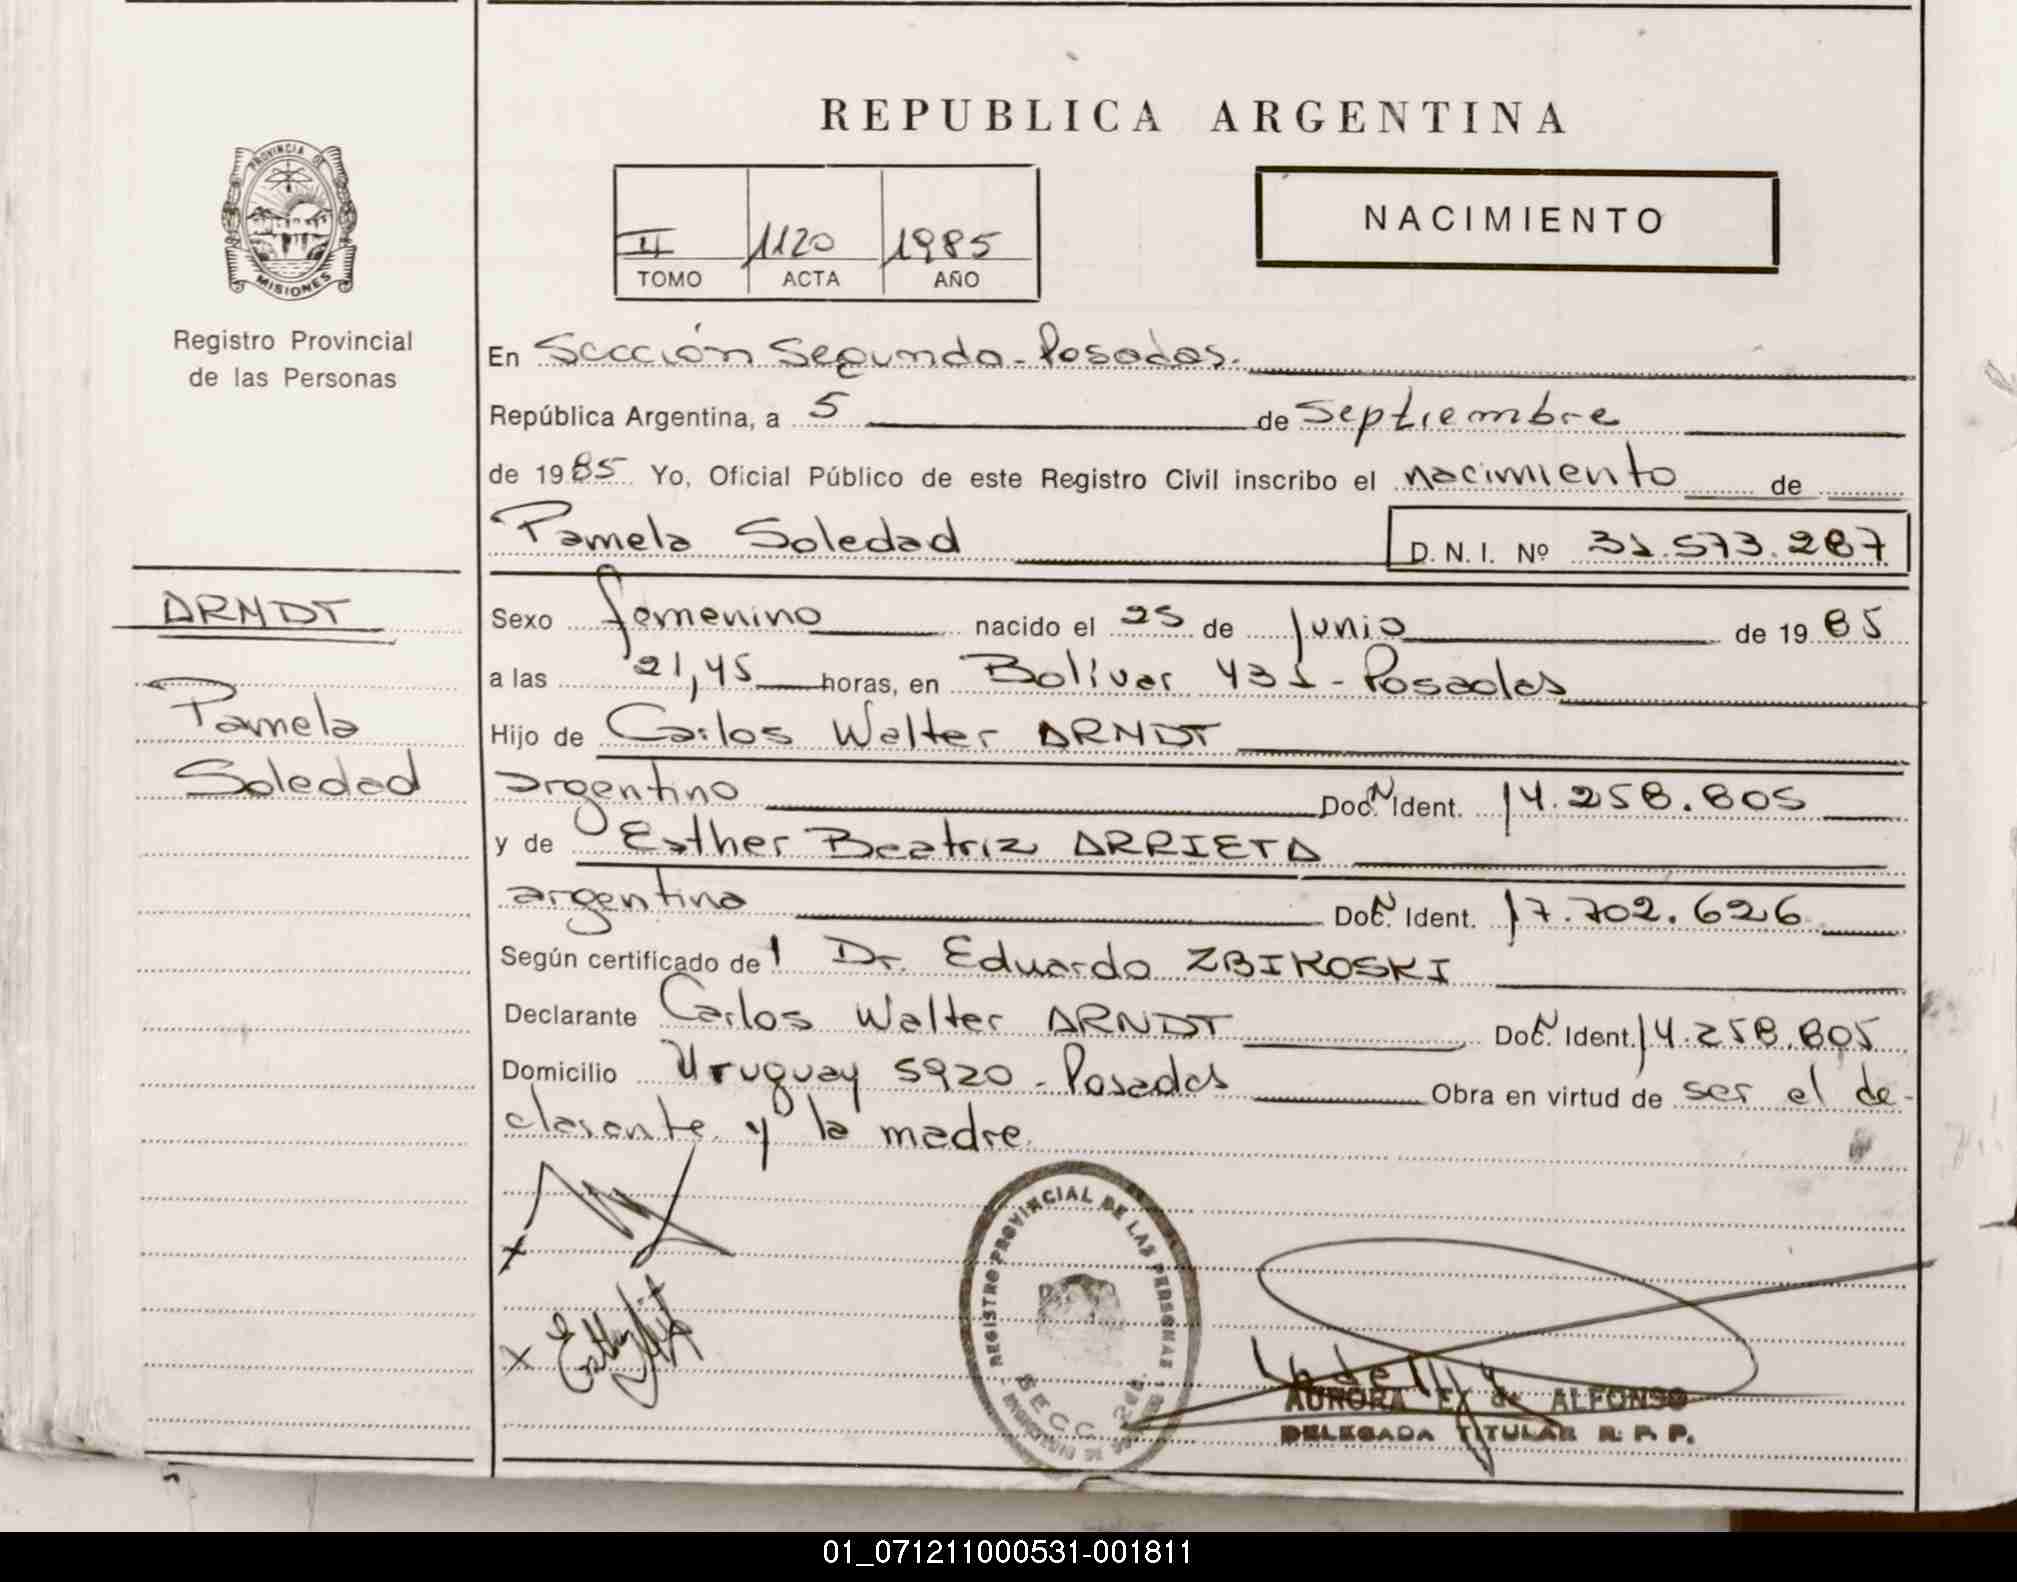 REPUBLICA ARGENTINA
PROVINCIA DE
MISIONES
Registro Provincial
de las Personas
II 1120 1985
TOMO ACTA AÑO
NACIMIENTO
En Sección Segunda - Posadas.
República Argentina, a 5 de Septiembre
de 1985 Yo, Oficial Público de este Registro Civil inscribo el nacimiento de
Pamela Soledad D. N. I. Nº 31.573.287
ARNDT
Pamela
Soledad
Sexo femenino nacido el 25 de Junio de 1985
a las 21,45 horas, en Bolívar 431 - Posadas
Hijo de Carlos Walter ARNDT
argentino Doc. N Ident. 14.258.805
y de Esther Beatriz ARRIETA
argentina Doc. N Ident. 17.702.626
Según certificado del Dr. Eduardo ZBIKOSKI
Declarante Carlos Walter ARNDT Doc. N Ident. 14.258.805
Domicilio Uruguay 5920 - Posadas Obra en virtud de ser el de-
clarante y la madre.
REGISTRO PROVINCIAL DE LAS PERSONAS
SECC.
AURORA E. de ALFONSO
DELEGADA TITULAR R. P. P.
01_071211000531-001811